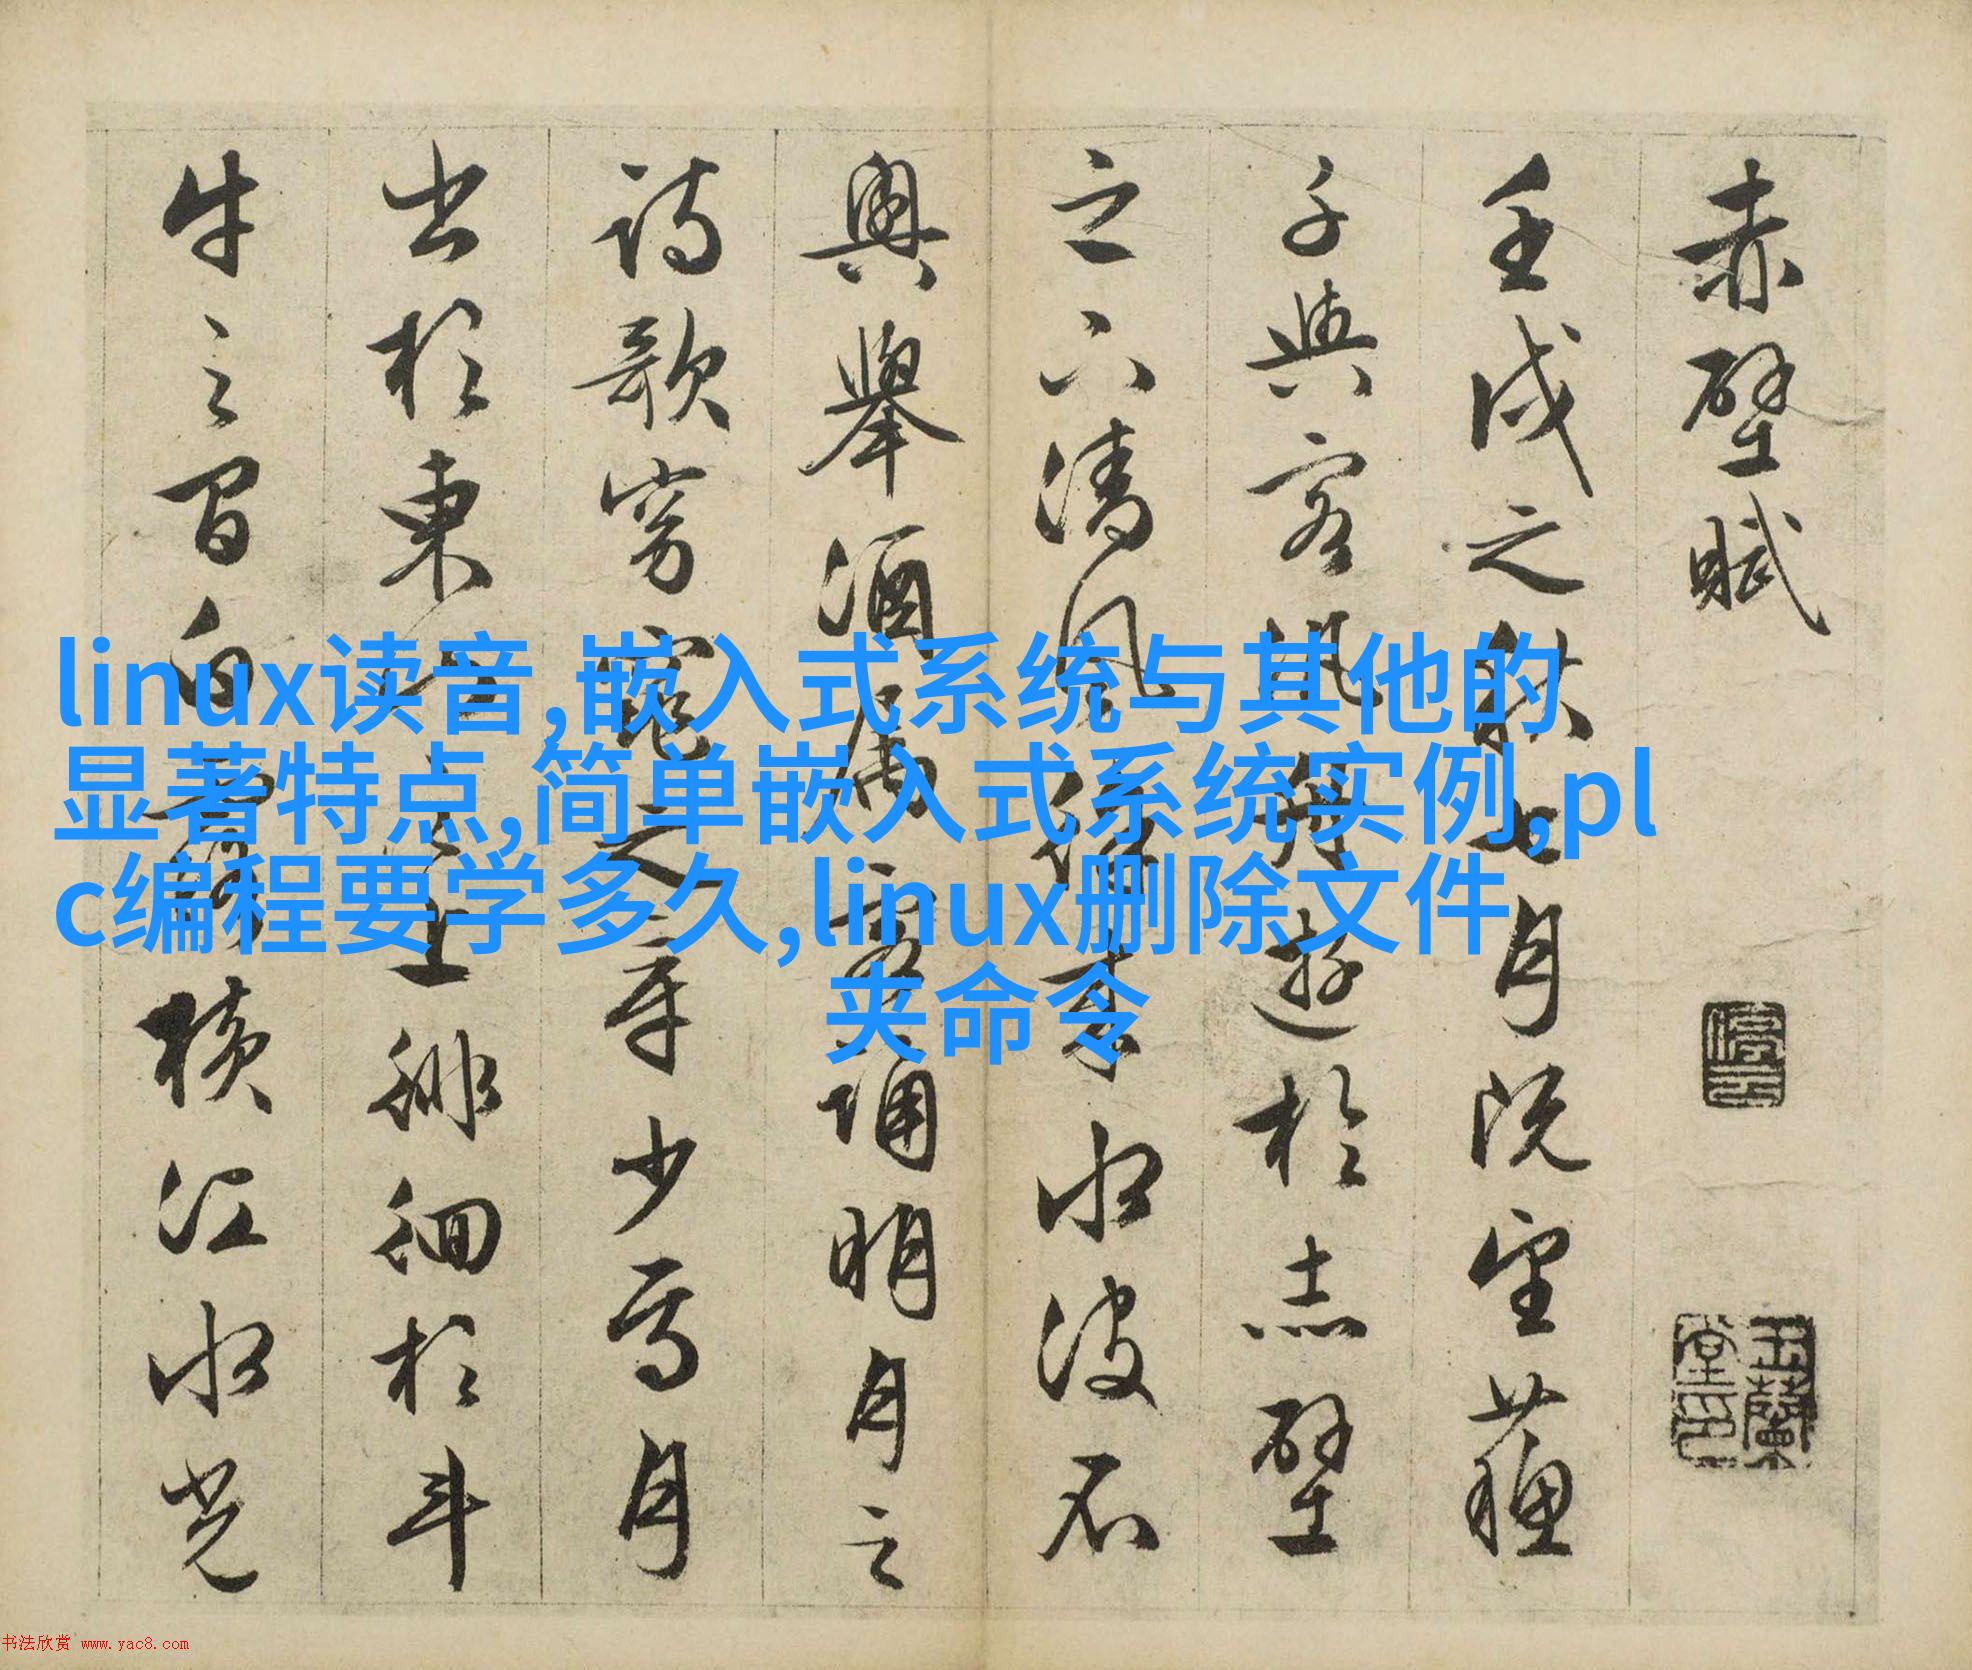 赤壁賦
壬戌之秋七月既望蘇
子與客汎舟遊於赤壁
之下清風徐来水波不
興舉酒属客誦明月之
詩歌窈窕之章少焉月
出於東山之上徘徊於斗
牛之間白露横江水光
linux读音,嵌入式系统与其他的
显著特点,简单嵌入式系统实例,pl
c编程要学多久,linux删除文件
夹命令
书法欣赏 www.yac8.com